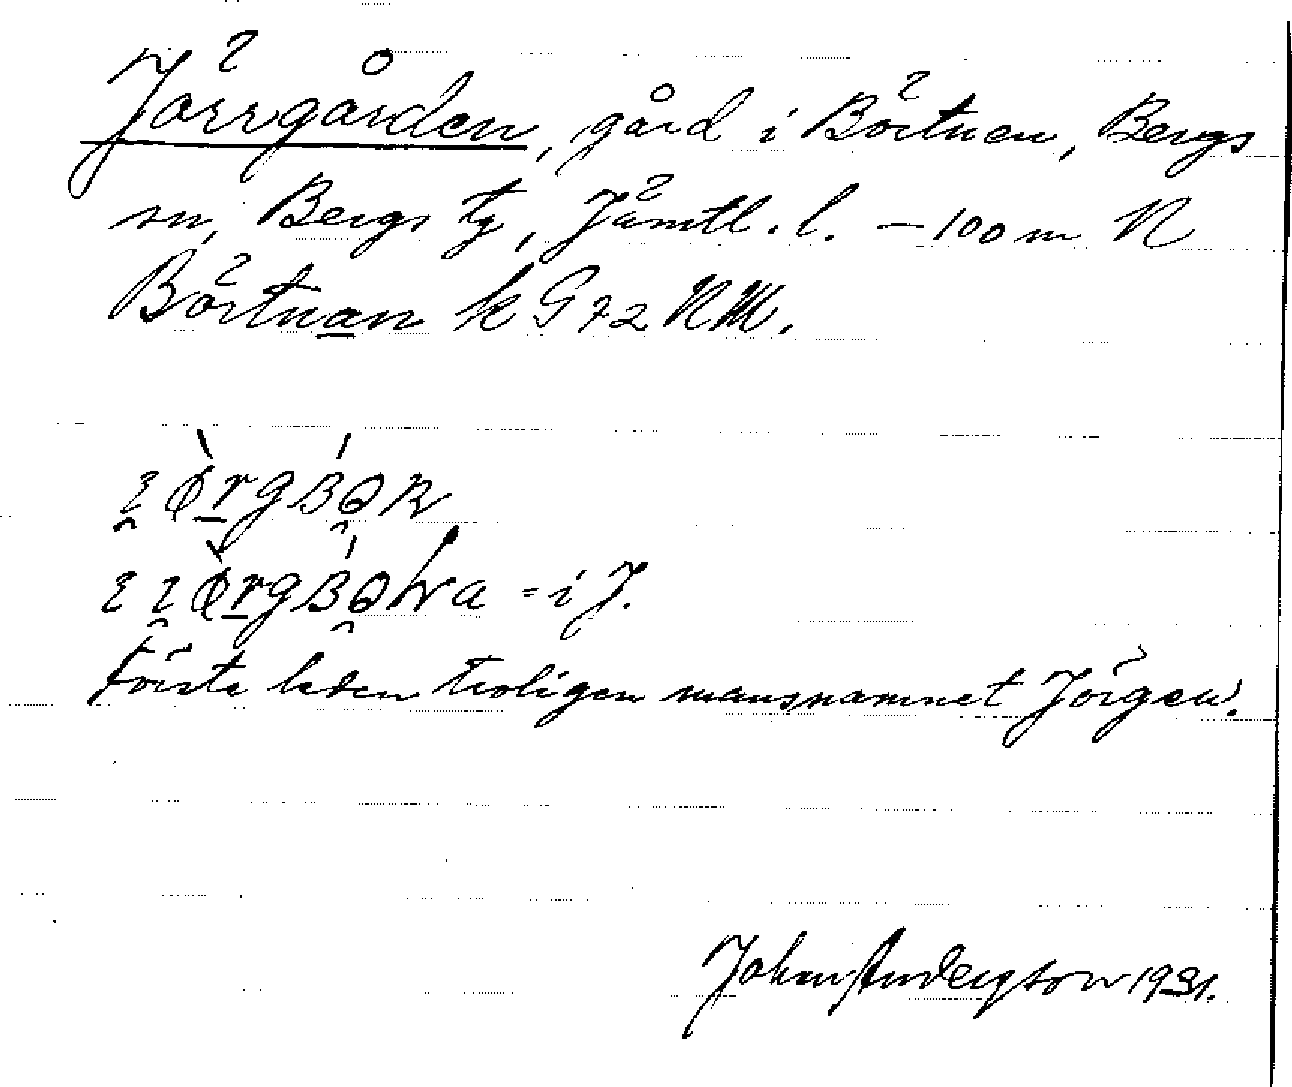 Jörrgården, gård i Börtnen, Bergs
sn, Bergs tg, Jämtl. l. – 100 m N
Börtnan k G 72 NM.
= i J.
Första leden troligen mansnamnet Jörgen.
Johan Andersson 1931.